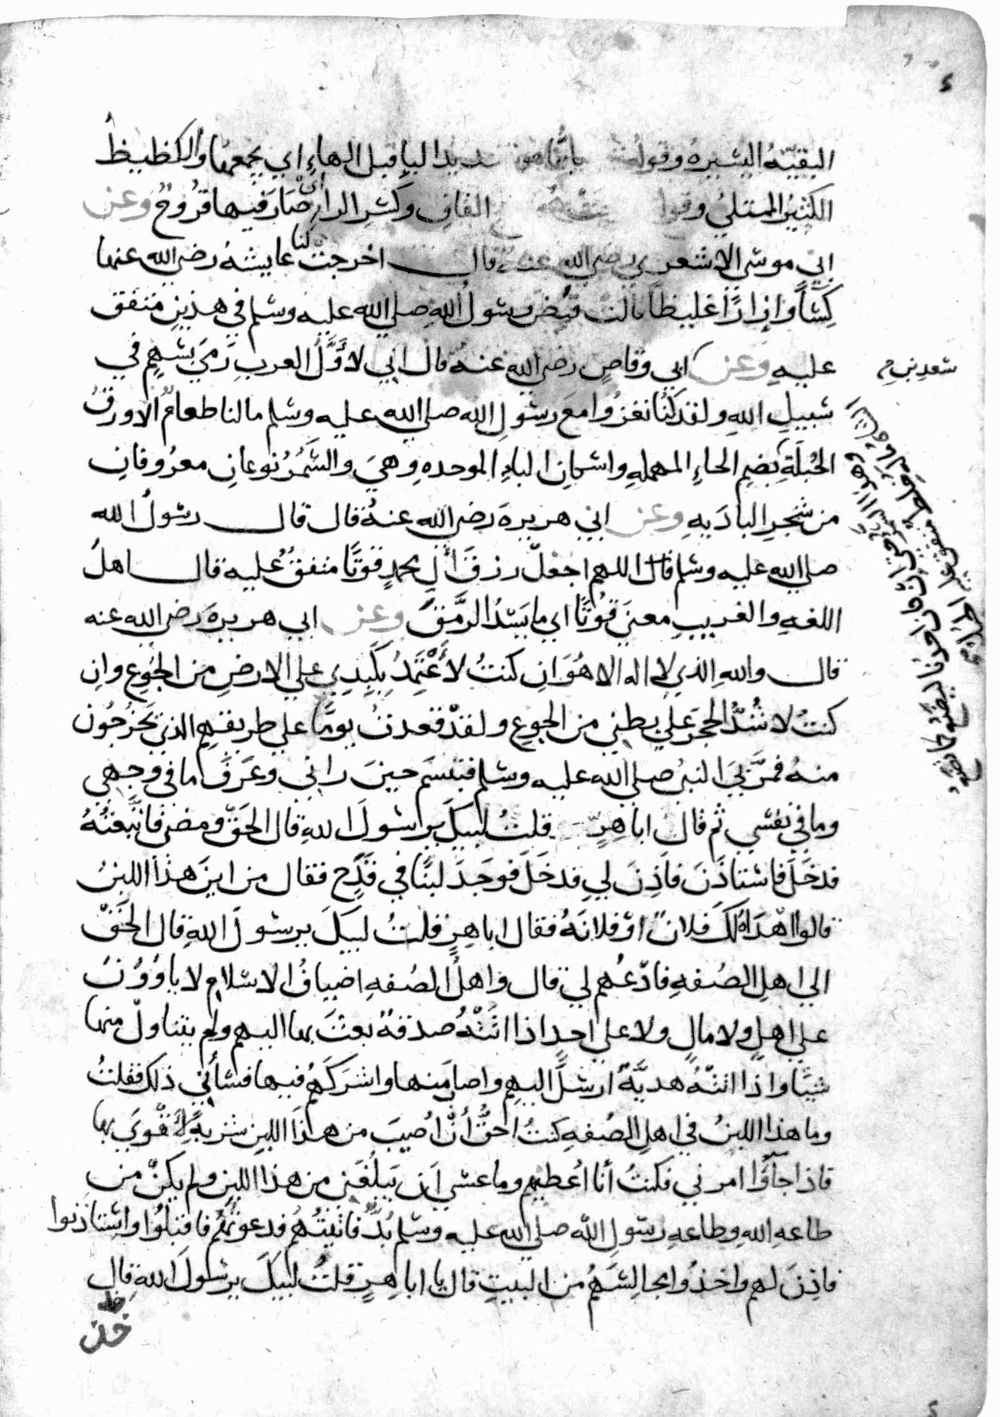 البقيّة اليسيره وقوله يتصابها هو بتشديد البا قبل الهاء اي يجمعها والكظيظ
الكثير الممتلئ وقوله القاف وكسر الراء اي صار فيها قروح وعن
ابي موسى الاشعري رضي الله عنه قال اخرجت لنا عايشه رضي الله عنها
كساً وازاراً غليظاً قالت قبض رسول الله صلى الله عليه وسلم في هذين متفق
عليه وعن ابي وقاص رضي الله عنه قال اني لاوّل العرب رمى بسهم في
سعد بن صح
سبيل الله ولقد كنا نغزوا مع رسول الله صلى الله عليه وسلم ما لنا طعام الا ورق
الحُبلَة بضم الحاء المهمله واسكان الباء الموحده وهي والسَّمُرُ نوعان معروفان
من شجر الباديه وعن ابي هريرة رضي الله عنه قال قال رسول الله
صلى الله عليه وسلم قال اللهم اجعل رزق آل محمدٍ قوتًا متفقٌ عليه قال اهل
اللغه والغريب معنى قوتًا اي ما يسُدّ الرَّمَق وعن ابي هريرة رضي الله عنه
قال والله الذي لا اله الا هُوَ ان كنتُ لأعْتَمِدُ بكَبِدِي على الارض من الجُوع وان
كنتُ لاشُدُّ الحجَر على بطني من الجوع ولقدْ قعدتُ يومًا على طريقهم الذي يخرجُون
منه فمرَّ بيَ النبيُ صلى الله عليه وسلم فتبسم حينَ راني وعَرَفَ ما في وجهي
وما في نفسي ثم قال اباهِرٍّ قلتُ لبيك يرسولَ الله قال الحَقْ ومضى فاتَّبعتُهُ
فدخَلَ فاستاذَنَ فاَذِنَ لي فدخَلَ فوَجَدَ لبنًا في قدَحٍ فقال من اينَ هذا اللبنُ
قالوا اهْدَاهُ لكَ فلانٌ اوْ فلانَهُ فقال اباهرٍ قلتُ لبيك يرسول الله قال الحَقْ
الى اهل الصُفهِ فادْعُهم لي قال واهلُ الصُفهِ اضيافُ الاسلام لا ياوُونَ
على اهلٍ ولا مالٍ ولا على احدٍ اذا اتَتْهُ صدقةٌ بعثَ بها اليهم ولم يتناولْ منها
شيًا واذا اتتْهُ هديَّةٌ ارسلَ اليهم واصابَ منها واشركَهُمْ فيها فسأني ذلك فقلتُ
وما هذا اللبنُ في اهل الصُفهِ كنتُ احقُّ أنْ اُصيبَ من هذا اللبن شربةً أَتقوَّى بها
فاذا جاؤُا امرني فكنتُ أنا اُعطيهم وما عسى ان يَبلُغَني من هذا اللبن ولم يكنْ من
طاعه الله وطاعه رسول الله صلى الله عليه وسلم بُدٌّ فاتيتُهُم فدعوتُهُم فاقبلُوا واستاذنوا
فاذِنَ لهم واخذُوا مجالِسَهُم من البيت قال يا اباهرٍ قلتُ لبيك يرسول الله قال
خذ